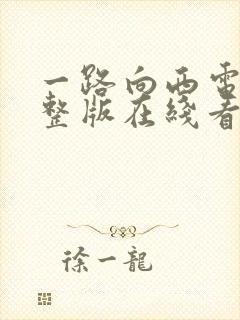 一路向西電
整版在綫看
徐一龍